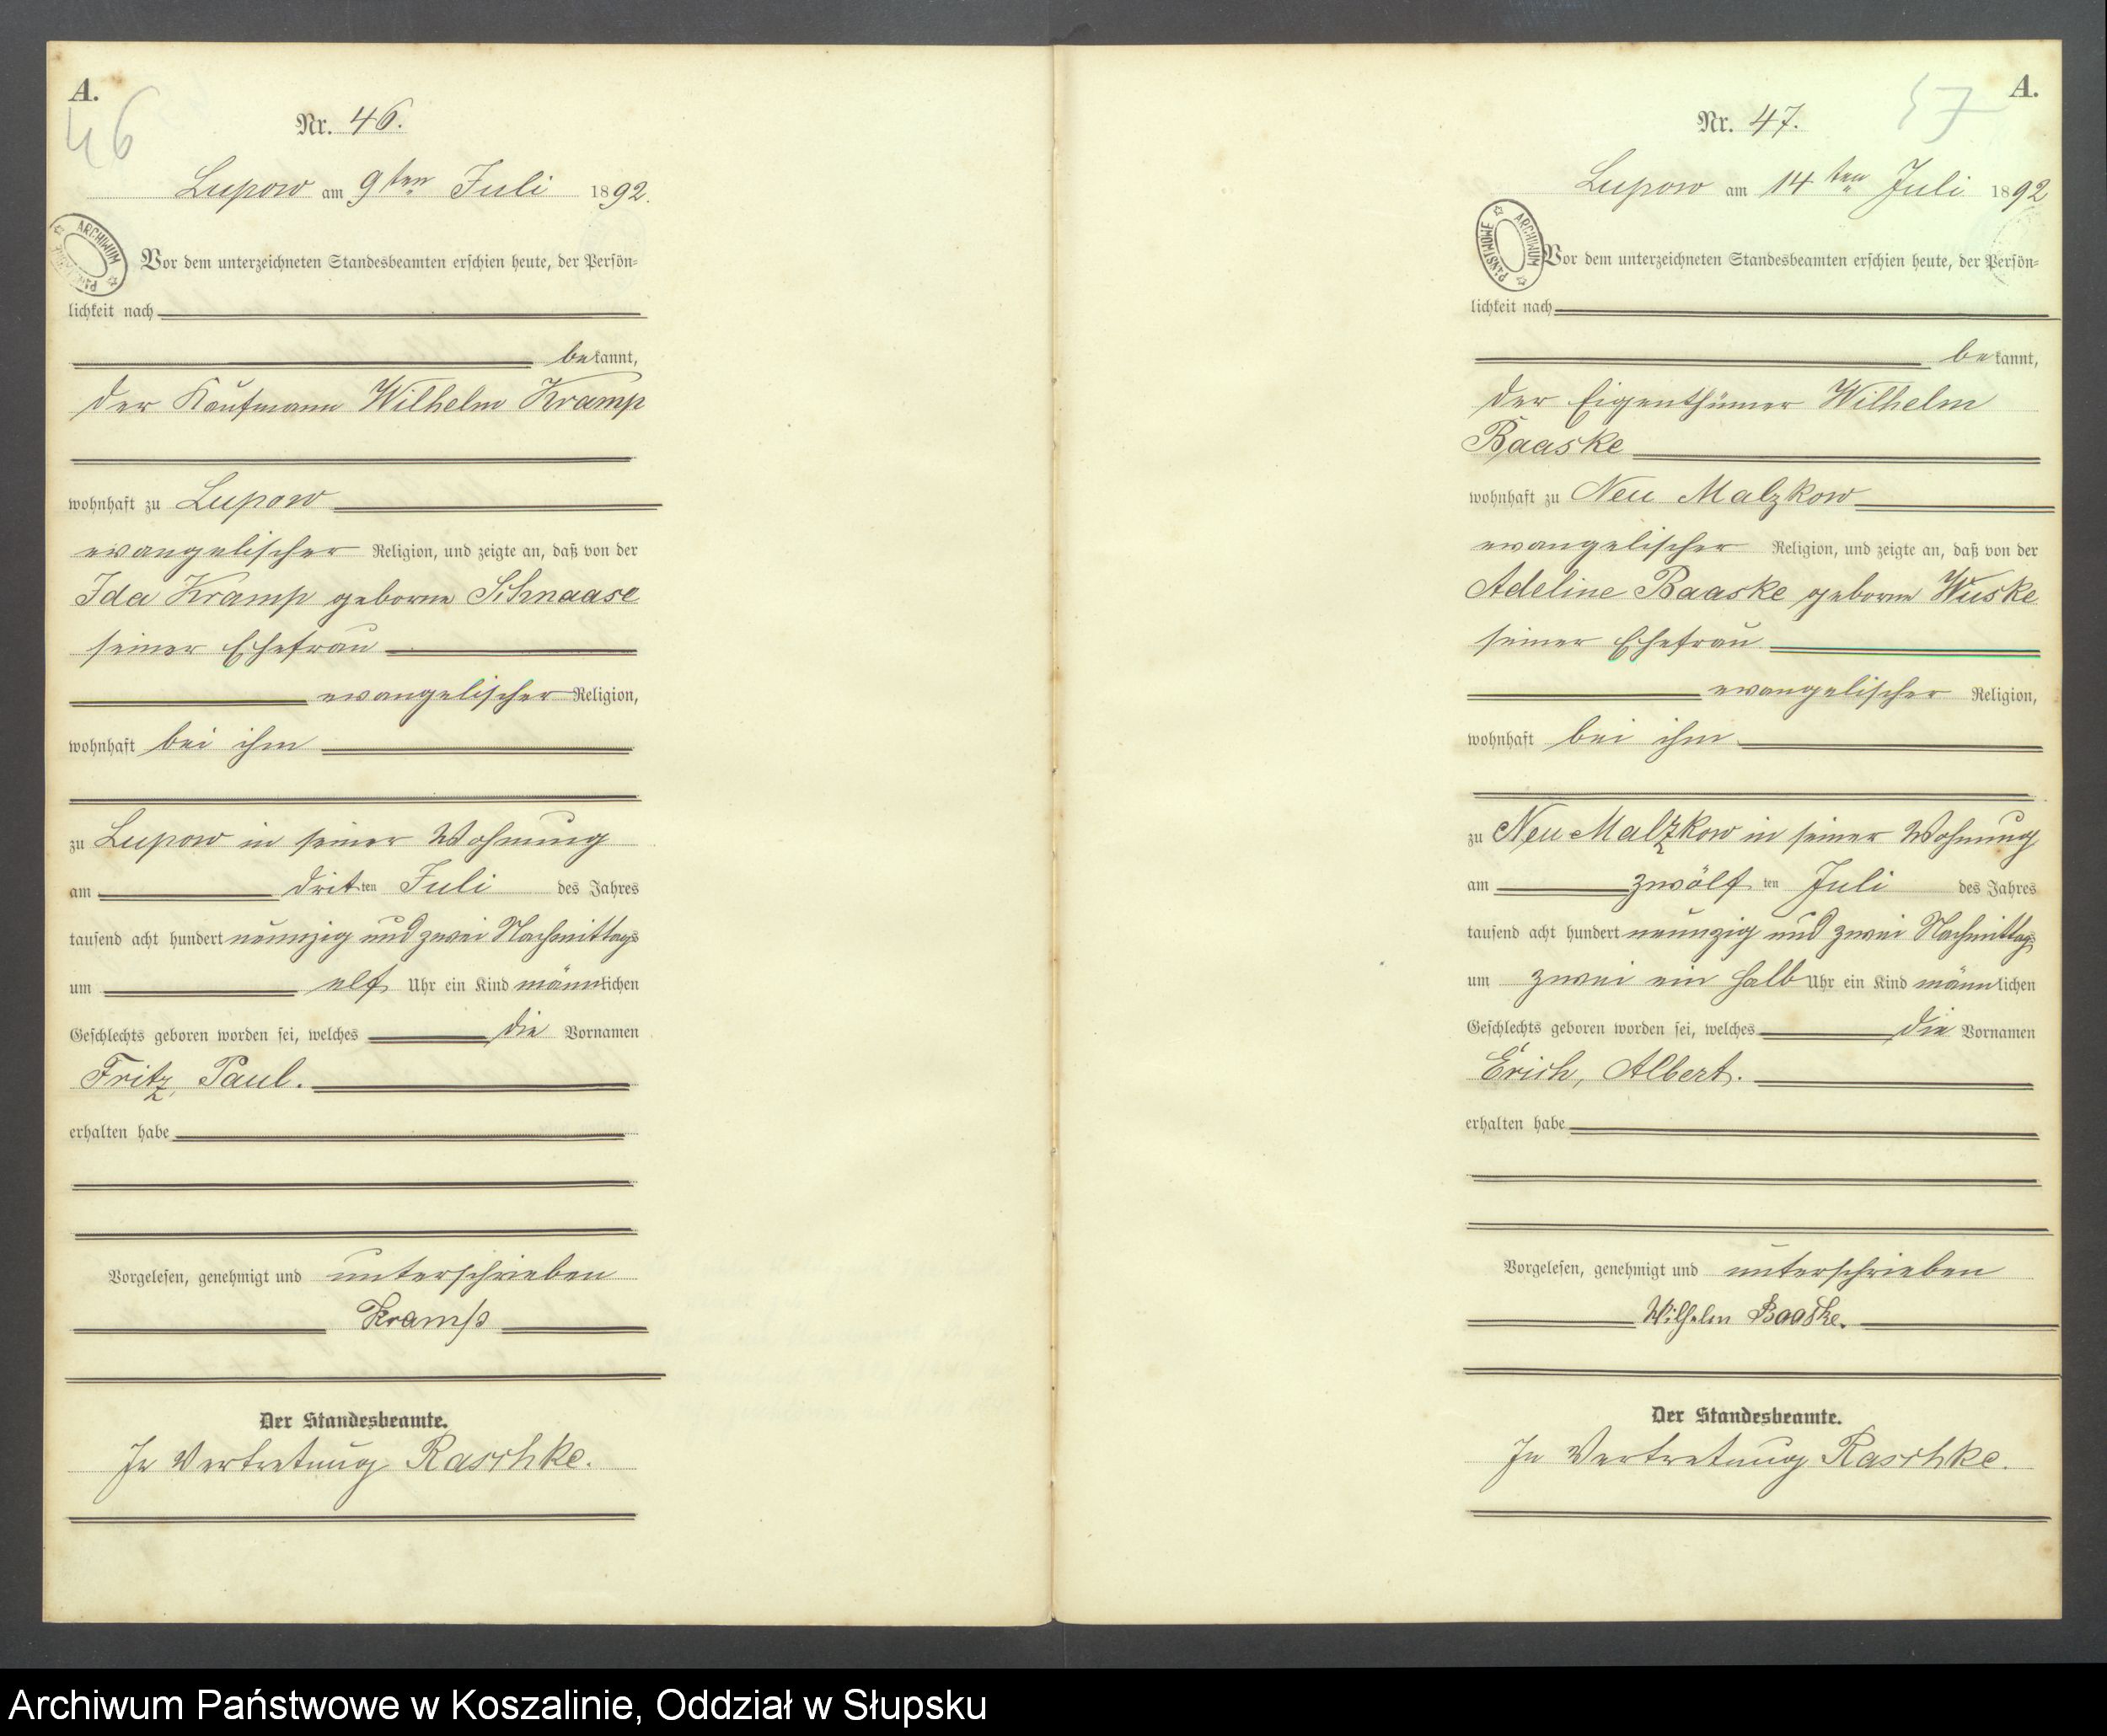 A.
46
Nr. 46.
Lupow am 9ten Juli 1892.
ARCHIWUM
Vor dem unterzeichneten Standesbeamten erschien heute, der Persön-
lichkeit nach
bekannt,
der Kaufmann Wilhelm Kramp
wohnhaft zu Lupow
evangelischer Religion, und zeigte an, daß von der
Ida Kramp geborne Schnaase
seiner Ehefrau
evangelischer Religion,
wohnhaft bei ihm
zu Lupow in seiner Wohnung
am dritten Juli des Jahres
tausend acht hundert neunzig und zwei Nachmittags
um elf Uhr ein Kind männlichen
Geschlechts geboren worden sei, welches die Vornamen
Fritz, Paul.
erhalten habe
Vorgelesen, genehmigt und unterschrieben
Kramp
Der Standesbeamte.
In Vertretung Raschke.
A.
47
Nr. 47.
Lupow am 14ten Juli 1892
ARCHIWUM PAŃSTWOWE
Vor dem unterzeichneten Standesbeamten erschien heute, der Persön-
lichkeit nach
bekannt,
der Eigenthümer Wilhelm
Baaske
wohnhaft zu Neu Malzkow
evangelischer Religion, und zeigte an, daß von der
Adeline Baaske geborne Wuske
seiner Ehefrau
evangelischer Religion,
wohnhaft bei ihm
zu Neu Malzkow in seiner Wohnung
am zwölften Juli des Jahres
tausend acht hundert neunzig und zwei Nachmittags
um zwei ein halb Uhr ein Kind männlichen
Geschlechts geboren worden sei, welches die Vornamen
Erich, Albert.
erhalten habe
Vorgelesen, genehmigt und unterschrieben
Wilhelm Baaske.
Der Standesbeamte.
In Vertretung Raschke.
Archiwum Państwowe w Koszalinie, Oddział w Słupsku